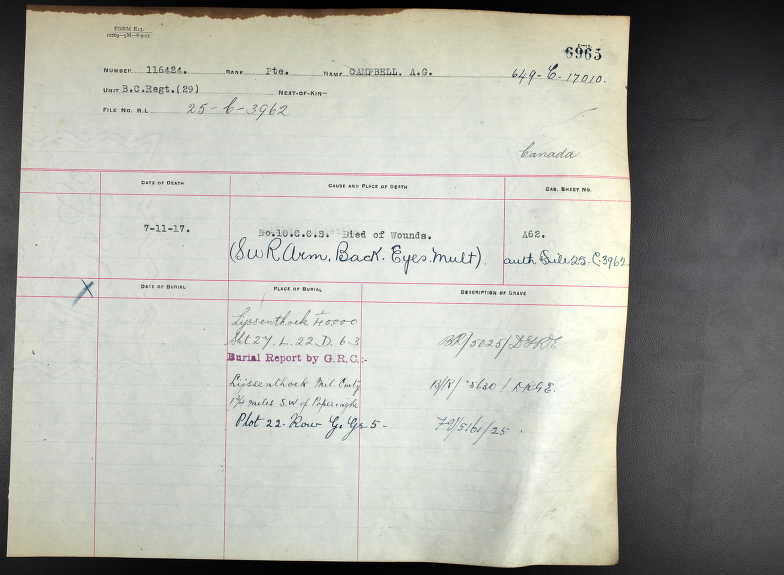 6965
NUMBER 116424. RANK Pte. NAME CAMPBELL. A.G. 649-C-17010.
UNIT B.C.Regt.(29) NEXT-OF-KIN—
FILE No. R.L. 25-C-3962
Canada
DATE OF DEATH CAUSE AND PLACE OF DEATH CAS. SHEET NO.
7-11-17. No.10.C.C.S. Died of Wounds. A62.
(SW R Arm. Back. Eyes. Mult). auth File 25-C-3962
X
DATE OF BURIAL PLACE OF BURIAL DESCRIPTION OF GRAVE
Lijssenthoek 1/40000
Sht 27. L. 22. D. 6.3
Burial Report by G.R.C.:-
Lijssenthoek Mil. Cmty
1¾ miles S.W of Poperinghe
Plot 22. Row G. Gr 5-